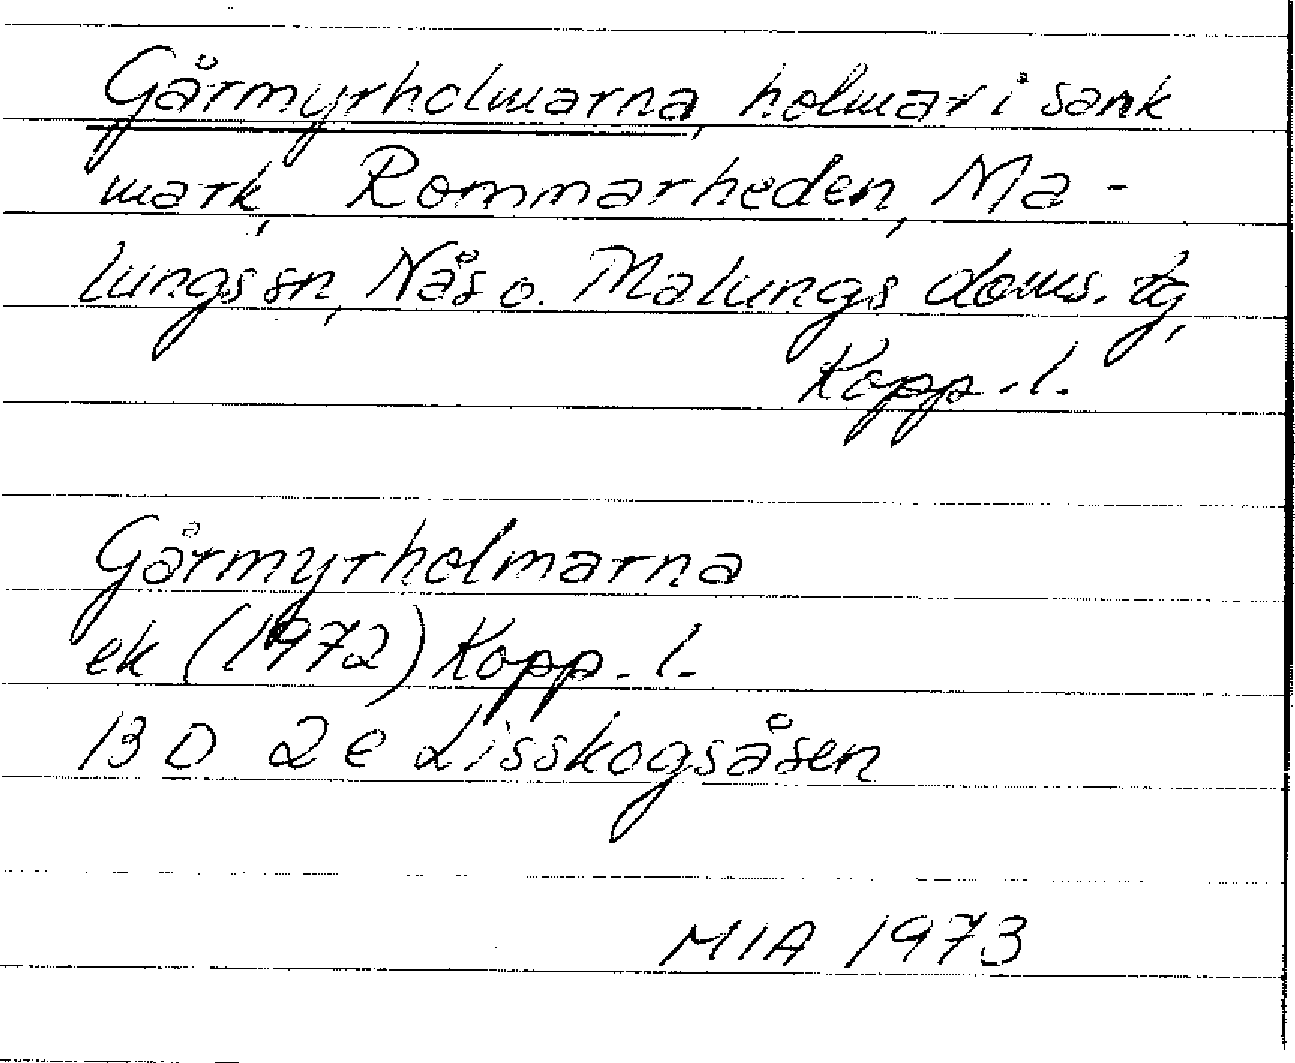 Gårmyrholmarna, holmar i sank
mark, Rommarheden, Ma-
lungs sn, Nås o. Malungs doms. tg,
Kopp. l.
Gårmyrholmarna
ek (1972) Kopp. l.
13 D 2 e Lisskogsåsen
MIA 1973